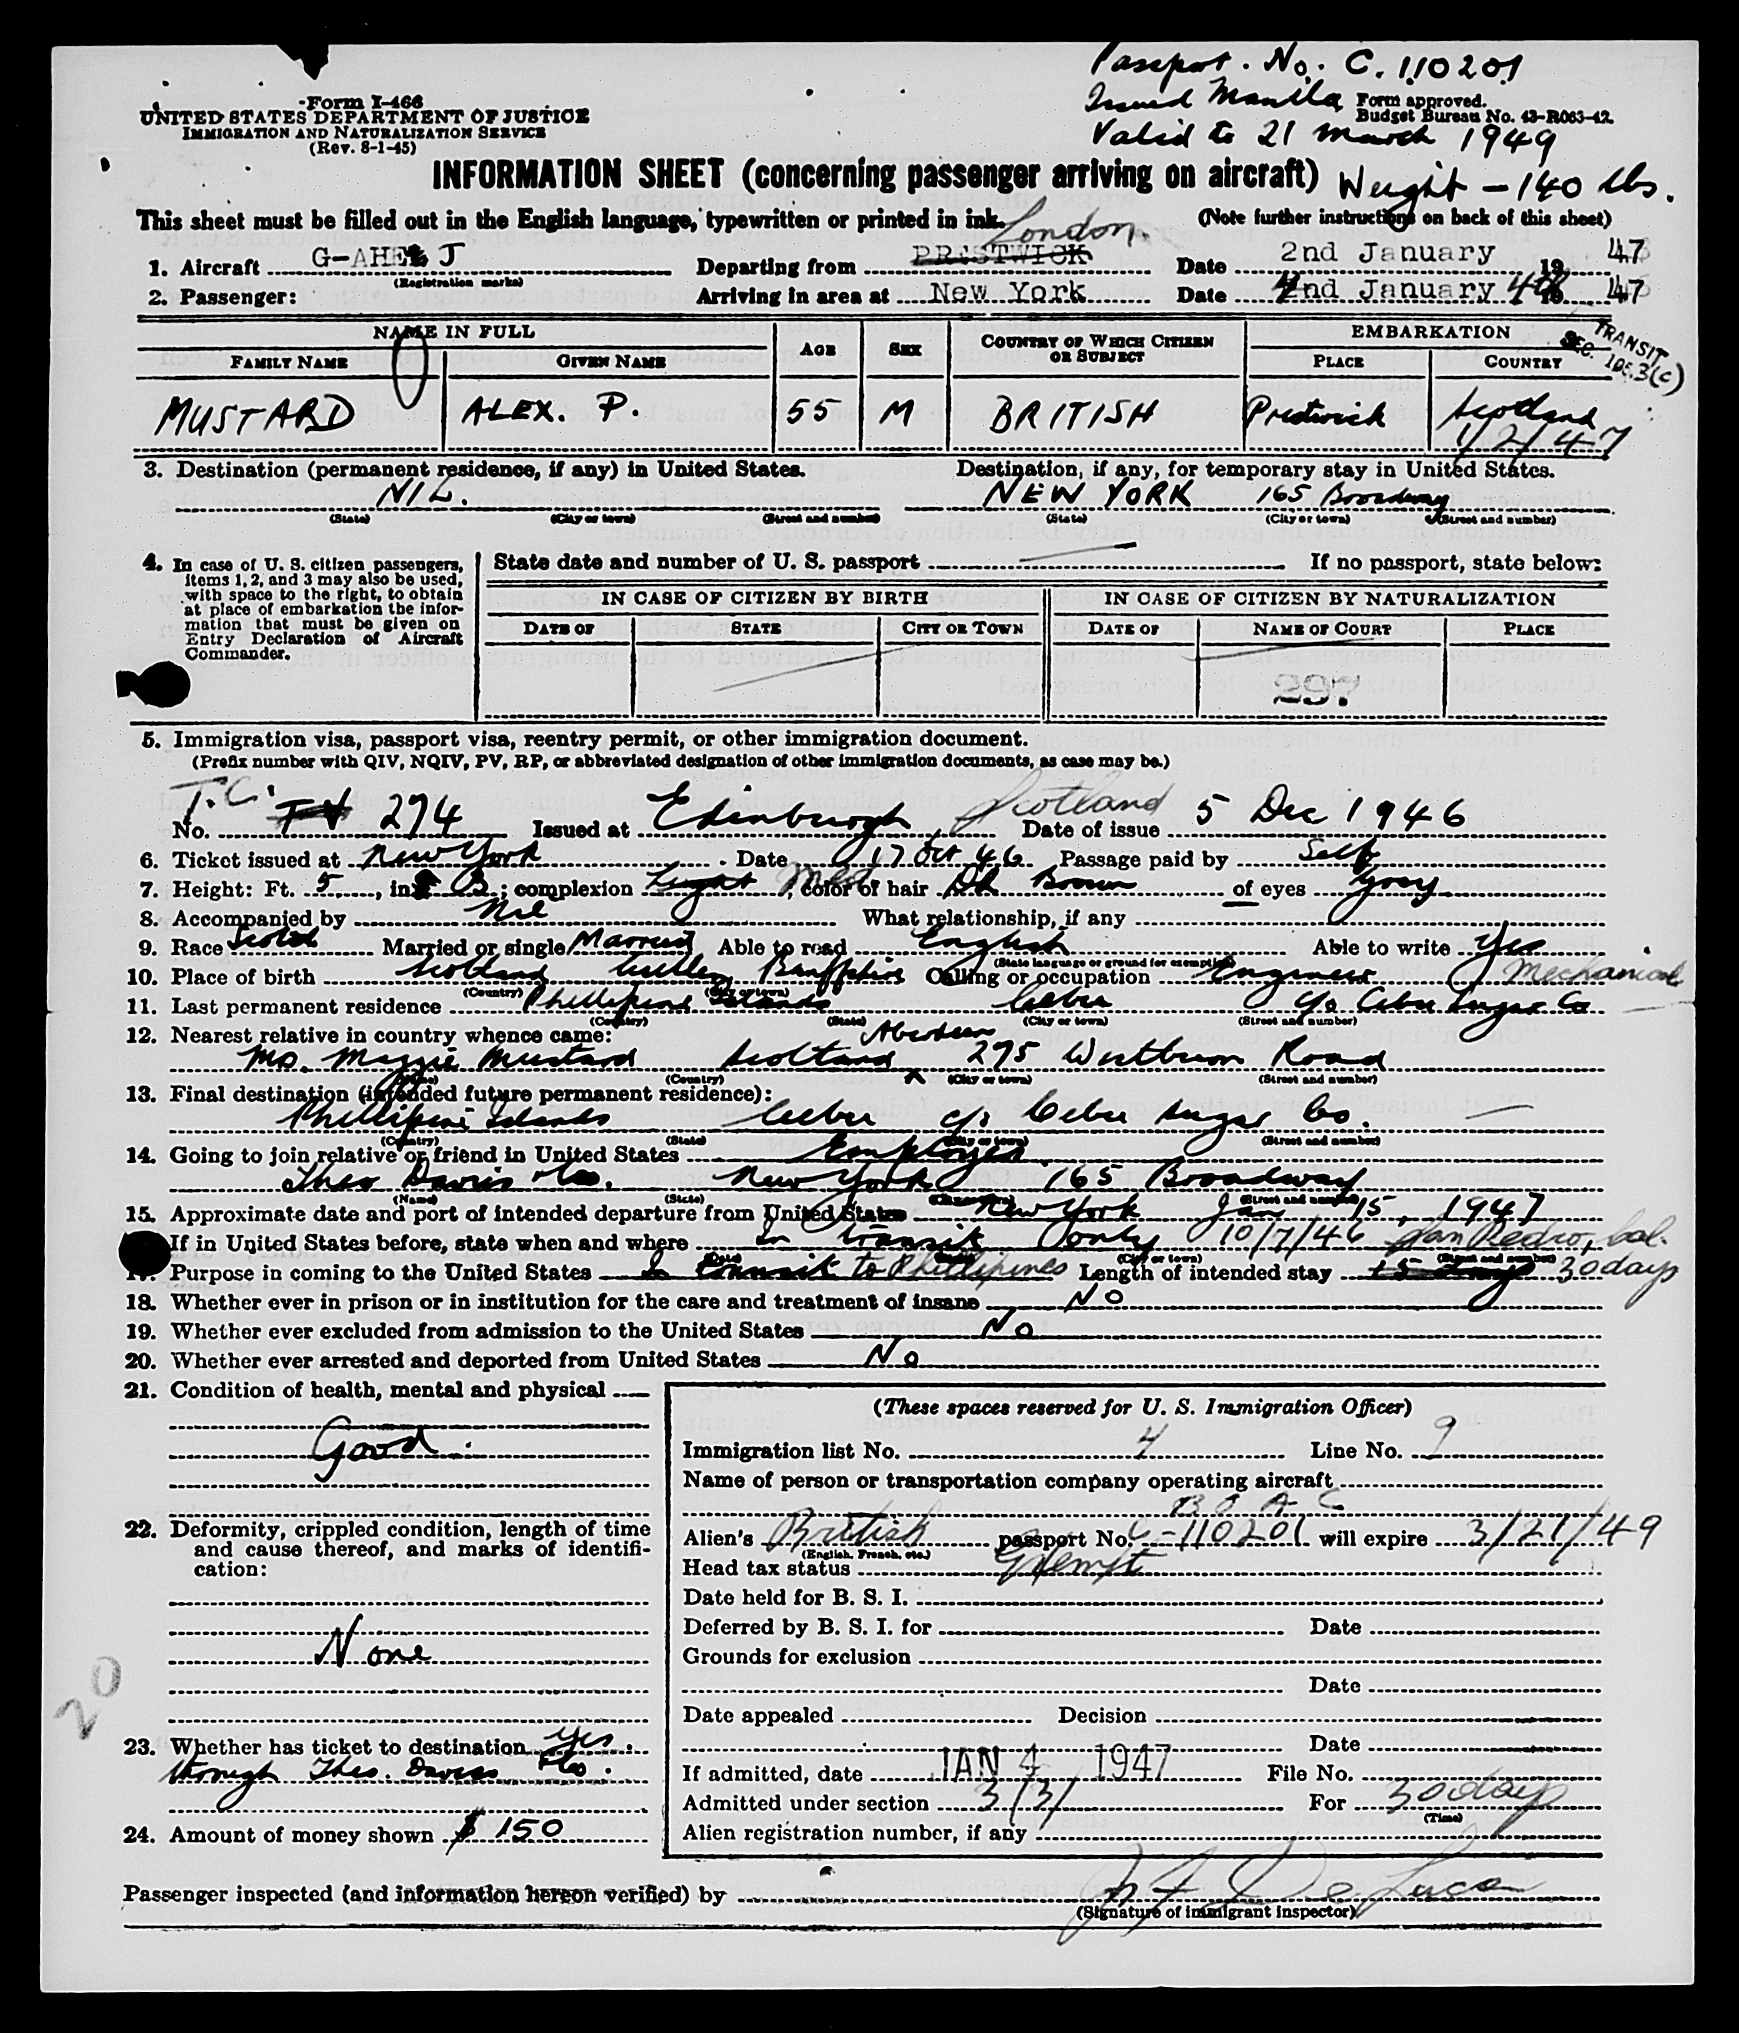 Passport. No. C. 110201
Issued Manila
Valid to 21 March 1949
Weight - 140 lbs.
Form I-466
UNITED STATES DEPARTMENT OF JUSTICE
IMMIGRATION AND NATURALIZATION SERVICE
(Rev. 8-1-45)
Form approved.
Budget Bureau No. 43-R063-42.
INFORMATION SHEET (concerning passenger arriving on aircraft)
This sheet must be filled out in the English language, typewritten or printed in ink.
(Note further instructions on back of this sheet)
London.
1. Aircraft G-AHE J Departing from PRESTWICK Date 2nd January 19 47
(Registration marks)
2. Passenger: Arriving in area at New York Date 2nd January 19 47
TRANSIT
SEC. 3(c)
NAME IN FULL AGE SEX COUNTRY OF WHICH CITIZEN OR SUBJECT EMBARKATION
FAMILY NAME GIVEN NAME PLACE COUNTRY
MUSTARD ALEX. P. 55 M BRITISH Prestwick Scotland
1/2/47
3. Destination (permanent residence, if any) in United States. Destination, if any, for temporary stay in United States.
NIL. NEW YORK 165 Broadway
(State) (City or town) (Street and number) (State) (City or town) (Street and number)
4. In case of U. S. citizen passengers,
items 1, 2, and 3 may also be used,
with space to the right, to obtain
at place of embarkation the infor-
mation that must be given on
Entry Declaration of Aircraft
Commander.
State date and number of U. S. passport If no passport, state below:
IN CASE OF CITIZEN BY BIRTH IN CASE OF CITIZEN BY NATURALIZATION
DATE OF STATE CITY OR TOWN DATE OF NAME OF COURT PLACE
297
5. Immigration visa, passport visa, reentry permit, or other immigration document.
(Prefix number with QIV, NQIV, PV, RP, or abbreviated designation of other immigration documents, as case may be.)
T.C.
No. 274 Issued at Edinburgh, Scotland Date of issue 5 Dec 1946
6. Ticket issued at New York Date 17 Oct 46 Passage paid by Self
7. Height: Ft. 5, in. 8; complexion Light Med, color of hair Dk Brown of eyes Grey
8. Accompanied by Nil What relationship, if any
9. Race Scotch Married or single Married Able to read English Able to write Yes
(State language or ground for exemption)
10. Place of birth Scotland Cullen Banffshire Calling or occupation Engineer Mechanical
(Country) (City or town)
11. Last permanent residence Phillipine Islands Cebu c/o Cebu Sugar Co
(Country) (State) (City or town) (Street and number)
12. Nearest relative in country whence came:
Aberdeen
Mrs. Maggie Mustard Scotland 275 Westburn Road
(Name) (Country) (City or town) (Street and number)
13. Final destination (intended future permanent residence):
Phillipine Islands Cebu c/o Cebu Sugar Co.
(Country) (State) (City or town) (Street and number)
14. Going to join relative or friend in United States Employer
Theo Davies & Co. New York 165 Broadway
(Name) (State) (City or town) (Street and number)
15. Approximate date and port of intended departure from United States New York Jan 15, 1947
If in United States before, state when and where In transit only 10/7/46 San Pedro, Cal.
(Date) (State) (City or town) (Street and number)
17. Purpose in coming to the United States In transit to Phillipines Length of intended stay 15 days 30 days
18. Whether ever in prison or in institution for the care and treatment of insane NO
19. Whether ever excluded from admission to the United States No
20. Whether ever arrested and deported from United States No
21. Condition of health, mental and physical
Good.
22. Deformity, crippled condition, length of time
and cause thereof, and marks of identifi-
cation:
None
20
23. Whether has ticket to destination Yes.
through Theo. Davies & Co.
24. Amount of money shown $ 150
(These spaces reserved for U. S. Immigration Officer)
Immigration list No. 4 Line No. 9
Name of person or transportation company operating aircraft
B O A C
Alien's British passport No. C-110201 will expire 3/21/49
(English, French, etc.)
Head tax status Exempt
Date held for B. S. I.
Deferred by B. S. I. for Date
Grounds for exclusion
Date
Date appealed Decision
Date
If admitted, date JAN 4 1947 File No.
Admitted under section 3/3/ For 30 days
(Time)
Alien registration number, if any
Passenger inspected (and information hereon verified) by De Luca
(Signature of immigrant inspector)